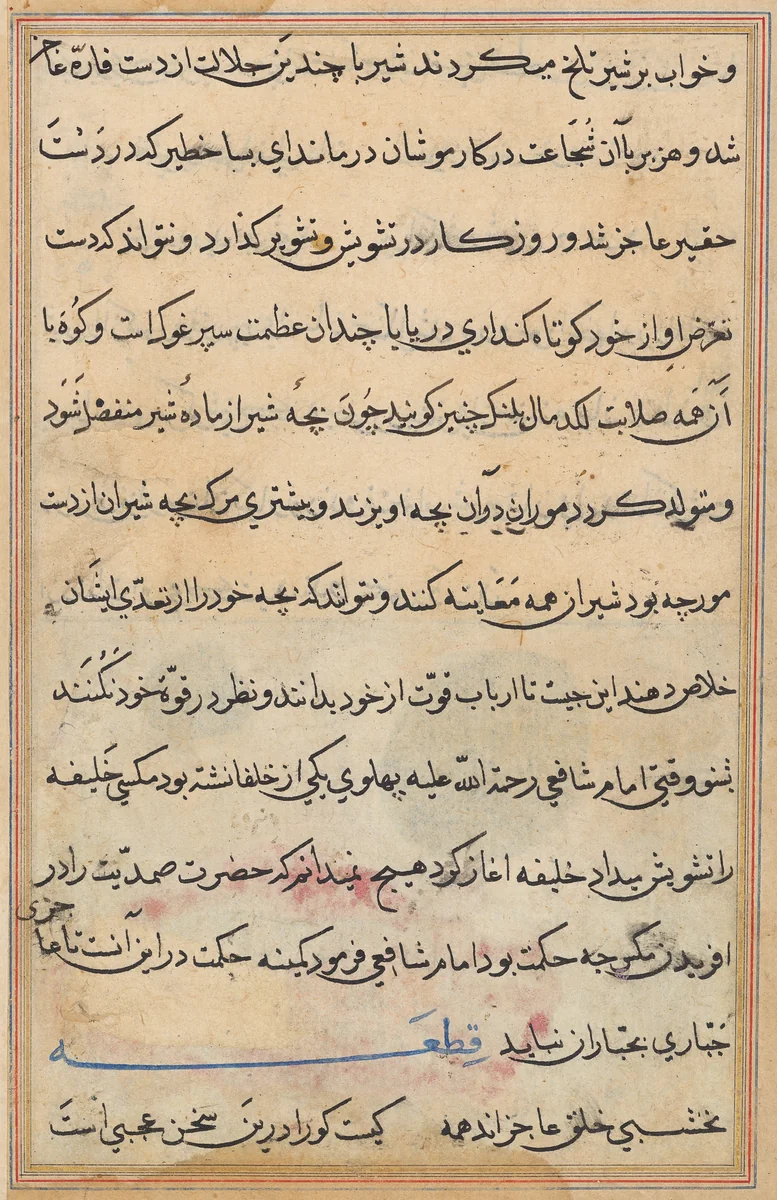 و خواب بر شیر تلخ میکردند شیر با چندین جلالت از دست فارهٔ عاجز
شد و هزبر با آن شُجَاعت در کار موشان درماند ای بسا خطیر که در دست
حقیر عاجز شد و روزکار در تشویش و تشویر کذارد و نتواند که دست
تعرّض او از خود کوتاه کند اری دریا با چندان عظمت سپر غوک است و کوُه با
آن هَمه صلابت لکدمال پلنک چنین کویند چوُن بچهٔ شیر از مادهٔ شیر منفصل شَوَد
و متولد کردد موران دران بچه اویزند و بیشتری مرک بچه شیران از دست
مورچه بود شیران همه مَعَاینه کنند و نتوانند که بچه خود را از تعدّی ایشان
خلاص دهند این چیست تا ارباب قوّت از خود بدانند و نظر در قوّة خود نکُنَند
شنو وقتی امام شافعی رحمة اللّه علیه پهلوی یکی از خلفا نشته بود مکسی خَلیفه
را تشویش میداد خلیفه اغاز کرد هیچ نمیدانم که حضرت صمدیّت را در
افریدن مکس چه حکمت بود امام شافعی فرمود کمینه حکمت در این آنست تا عاجزی
جَبّاری بجبّاران نباید قِطعَـه
نخشبی خلق عاجزاند همه کیست کو را درین سخن عجبی است